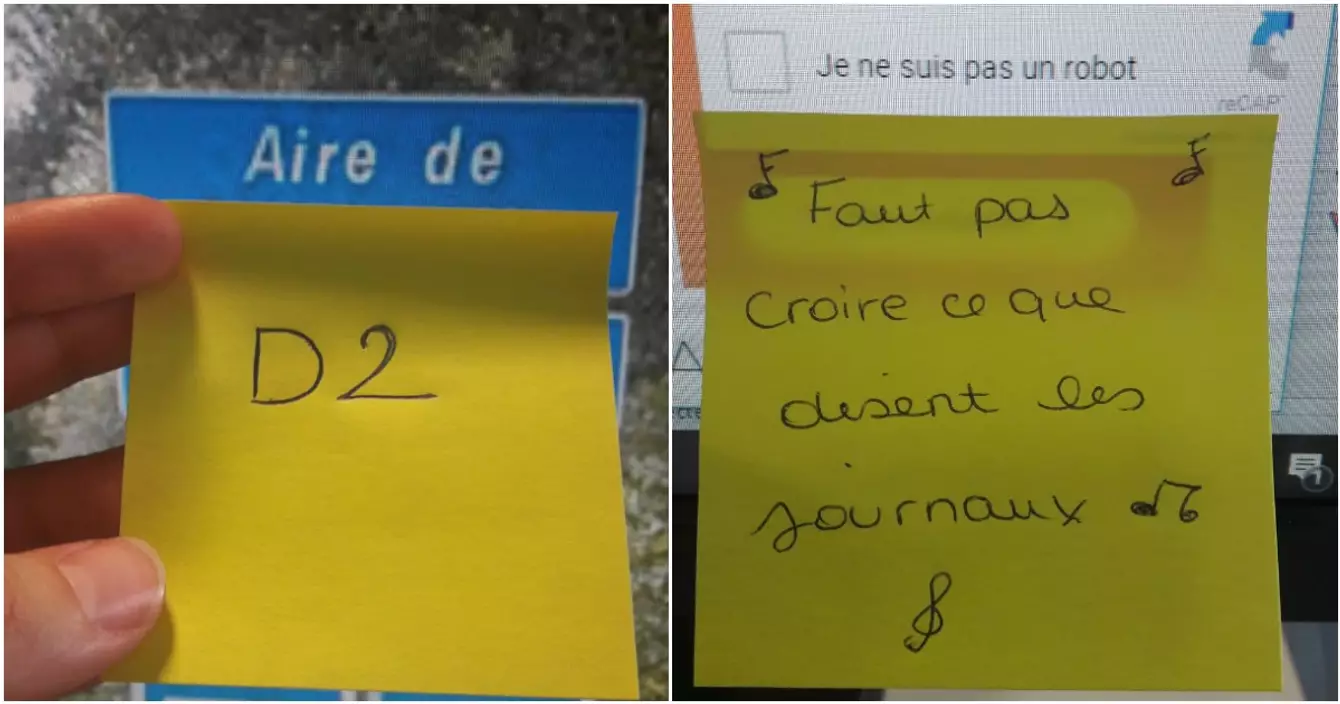 Aire de
D2
Je ne suis pas un robot
reCAP
Faut pas
Croire ce que
disent les
journaux
1